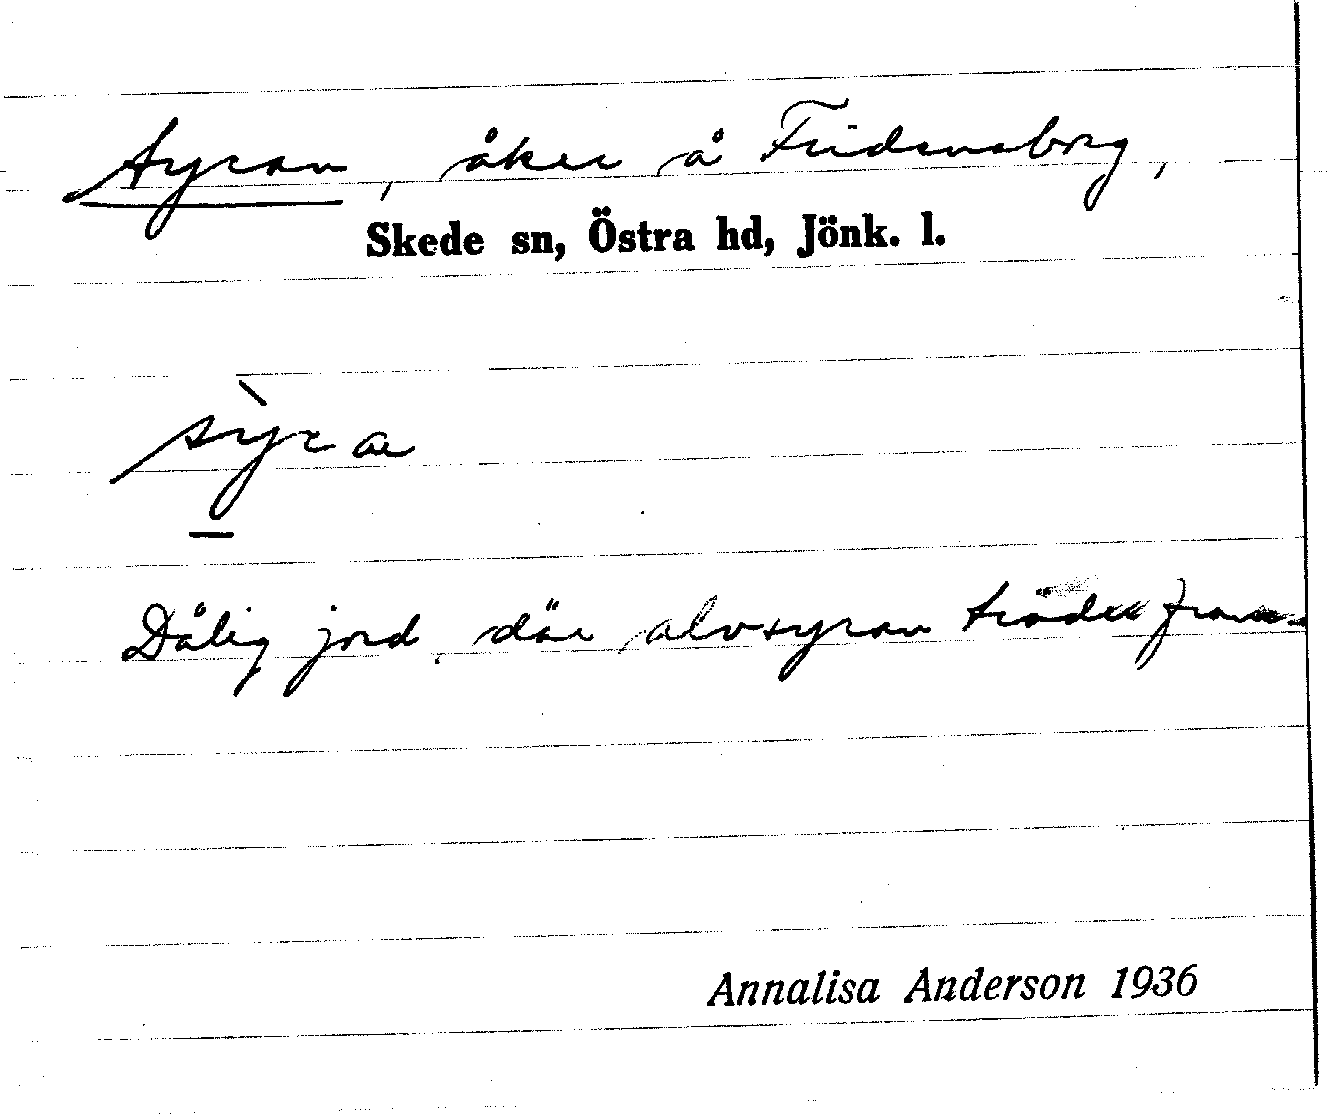 Syran, åker å Fridensborg,
Skede sn, Östra hd, Jönk. l.
sỳra
Dålig jord, där alvsyran träder fram.
Annalisa Anderson 1936